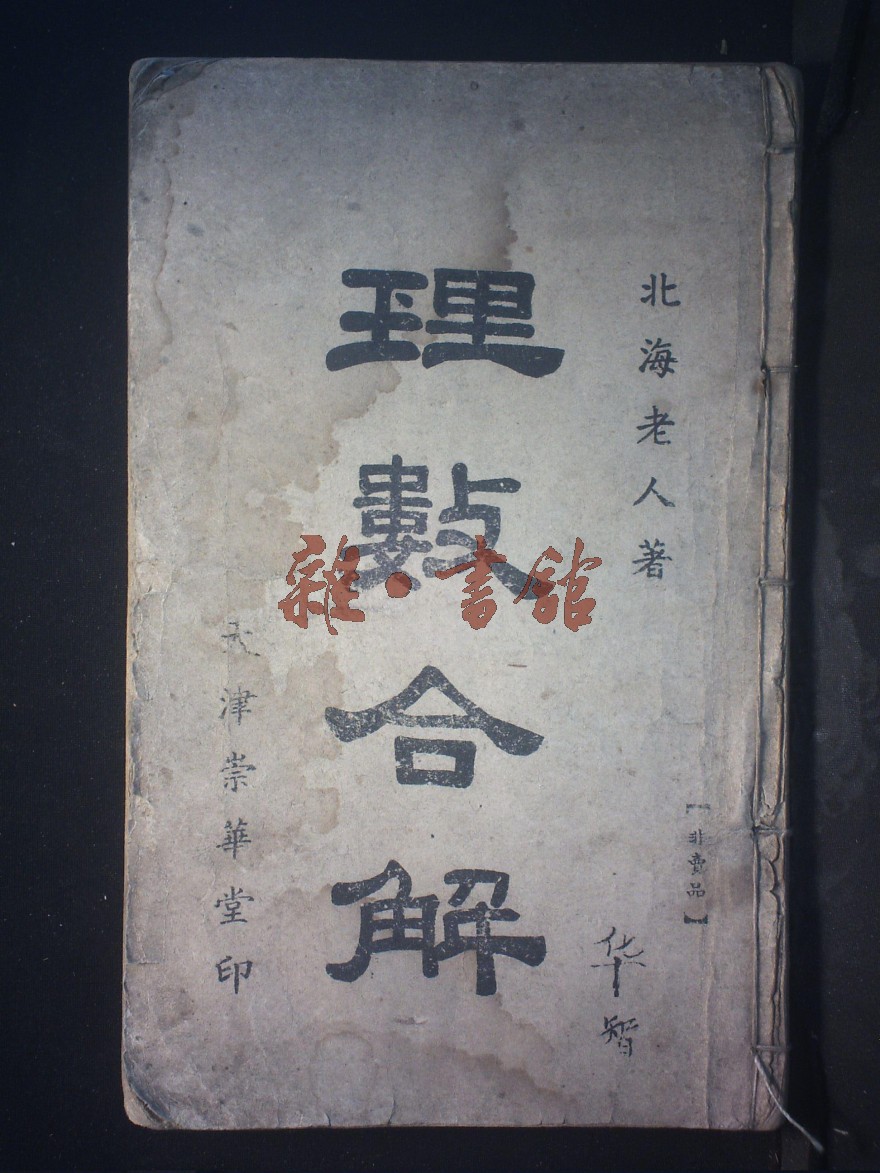 北海老人著
【非賣品】
华智
理數合解
天津崇華堂印
雜·書館